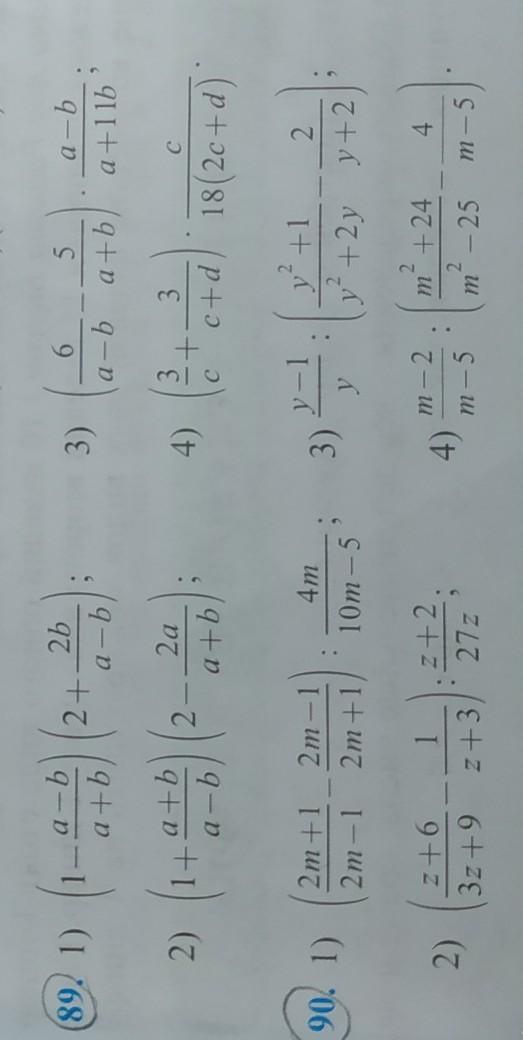 89. 1) (1 − (a − b)/(a + b)) (2 + 2b/(a − b)); 3) (6/(a − b) − 5/(a + b)) · (a − b)/(a + 11b);
2) (1 + (a + b)/(a − b)) (2 − 2a/(a + b)); 4) (3/c + 3/(c + d)) · c/(18(2c + d)).
90. 1) ((2m + 1)/(2m − 1) − (2m − 1)/(2m + 1)) : 4m/(10m − 5); 3) (y − 1)/y : ((y² + 1)/(y² + 2y) − 2/(y + 2));
2) ((z + 6)/(3z + 9) − 1/(z + 3)) : (z + 2)/(27z); 4) (m − 2)/(m − 5) : ((m² + 24)/(m² − 25) − 4/(m − 5)).